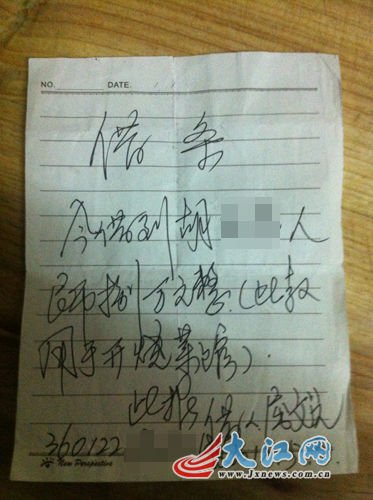 NO. DATE. / /
借 条
今借到胡 人
民币捌万元整.(此款
用于开烧菜馆).
此据 借人
360122
New Perspective
大江网
www.jxnews.com.cn